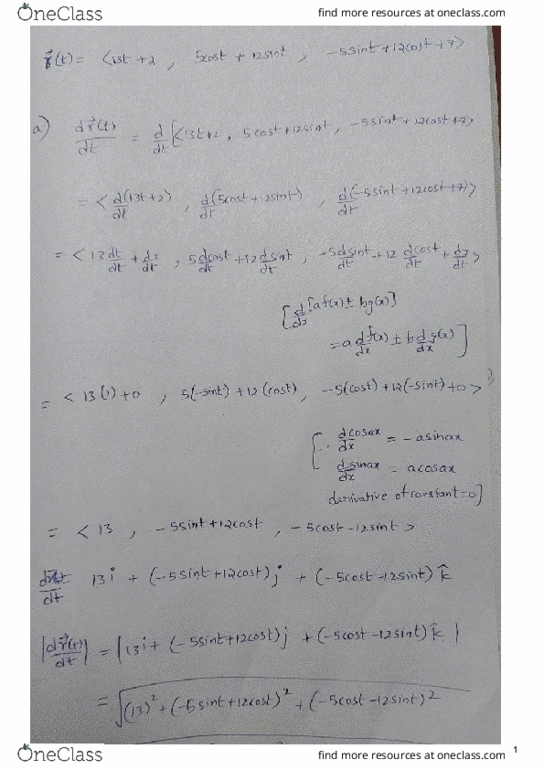 OneClass find more resources at oneclass.com
r⃗(t) = <13t+2 , 5cost+12sint , -5sint+12cost+7>
a) dr⃗(t)/dt = d/dt[<13t+2, 5cost+12sint, -5sint+12cost+7>
= <d(13t+2)/dt , d(5cost+12sint)/dt , d(-5sint+12cost+7)/dt>
= <13dt/dt + d2/dt , 5dcost/dt+12dsint/dt , -5dsint/dt+12 dcost/dt + d7/dt>
[d/dx[af(x) ± bg(x)]
= a df(x)/dx ± b dg(x)/dx]
= <13(1)+0 , 5(-sint)+12(cost), -5(cost)+12(-sint)+0>
[∴ dcosax/dx = -asinax
dsinax/dx = acosax
derivative of constant=0]
= <13 , -5sint+12cost, -5cost-12sint>
dr⃗(t)/dt 13i + (-5sint+12cost)j + (-5cost-12sint)k̂
|dr⃗(t)/dt| = |13i+(-5sint+12cost)j +(-5cost-12sint)k̂|
= √(13)²+(-5sint+12cost)²+(-5cost-12sint)²
OneClass find more resources at oneclass.com
1